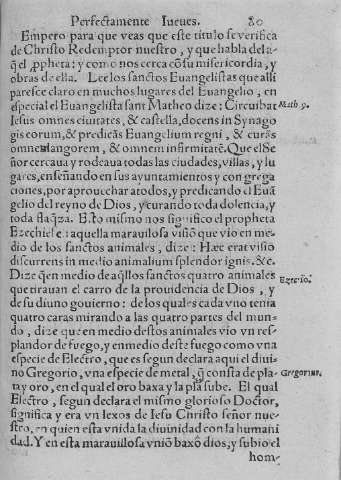 Perfectamente Iueues. 80
Empero para que veas que este titulo se verifica
de Christo Redemptor nuestro, y que habla del a-
q̃l ꝓpheta: y como nos cerca cõ su misericordia, y
obras de ella. Lee los sanctos Euangelistas que alli
paresce claro en muchos lugares del Euangelio, en
especial el Euangelista sant Matheo dize: Circuibat Math 9.
Iesus omnes ciuitates, & castella, docens in Synago
gis eorum, & predicãs Euangelium regni, & curãs
omnem langorem, & omnem infirmitatẽ. Que el Se
ñor cercaua y rodeaua todas las ciudades, villas, y lu
gares, enseñando en sus ayuntamientos y congrega
ciones, por aprouechar a todos, y predicando el Euã
gelio del reyno de Dios, y curando toda dolencia, y
toda flaq̃za. Esto mismo nos significo el propheta
Ezechiel en aquella marauillosa visiõ que vio en me
dio de los sanctos animales, dize: Hæc erat visio
discurrens in medio animalium splendor ignis. &c.
Dize q̃ en medio de aq̃llos sanctos quatro animales
que tirauan el carro de la prouidencia de Dios, y Ezechie.
de su diuno gouierno: de los quales cada vno tenia
quatro caras mirando a las quatro partes del mun-
do, dize que en medio destos animales vio vn res-
plandor de fuego, y en medio deste fuego como vna
especie de Electro, que es segun declara aqui el diui
no Gregorio, vna especie de metal, q̃ consta de pla- Gregorius.
ta y oro, en el qual el oro baxa y la plã sube. El qual
Electro, segun declara el mismo glorioso Doctor,
significa y era vn lexos de Iesu Christo señor nue-
stro, en quien esta vnida la diuinidad con la humani
dad. Y en esta marauillosa vniõ baxó dios, y subio el
hom-